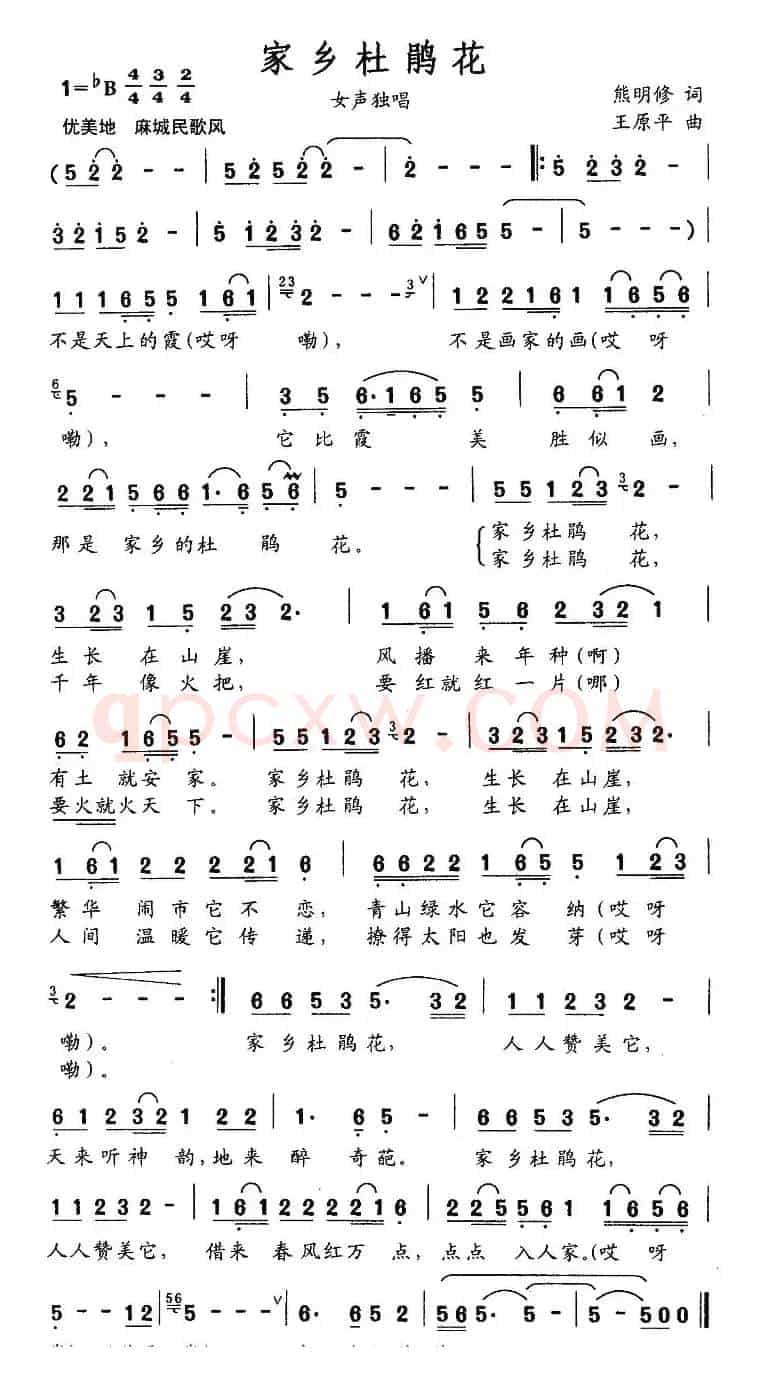 家乡杜鹃花
1=♭B 4/4 3/4 2/4
女声独唱
熊明修 词
优美地 麻城民歌风
王原平 曲
(5 2 2 - - | 5 2 5 2 2 - | 2 - - |: 5 2 3 2 |
3 2 1 5 2 - | 5 1 2 3 2 - | 6 2 1 6 5 5 - | 5 - - ) |
1 1 1 6 5 5 1 6 1 | 23 2 - - 3 | 1 2 2 1 6 1 1 6 5 6 |
不是天上的霞(哎呀 嘞), 不是画家的画(哎 呀
6 5 - - - | 3 5 6· 1 6 5 5 | 6 6 1 2 |
嘞), 它比霞 美 胜似画,
2 2 1 5 6 6 1· 6 5 6 | 5 - - - | 5 5 1 2 3 3 2 - |
那是 家乡的杜 鹃 花。 家乡杜鹃 花,
家乡杜鹃 花,
3 2 3 1 5 2 3 2· | 1 6 1 5 6 2 3 2 1 |
生长 在山崖, 风播 来年种(啊)
千年 像火把, 要红就红一片(哪)
qpcxw.COM
6 2 1 6 5 5 - | 5 5 1 2 3 3 2 - | 3 2 3 1 5 2 3 2· |
有土 就安家。 家乡杜鹃 花, 生长 在山崖,
要火就火天 下。 家乡杜鹃 花, 生长 在山崖,
1 6 1 2 2 2 2 1 6 | 6 6 2 2 1 6 5 5 1 2 3 |
繁华 闹市它不 恋, 青山绿水它容 纳(哎呀
人间 温暖它传 递, 撩得太阳也发 芽(哎呀
3 2 - - - :| 6 6 5 3 5· 3 2 | 1 1 2 3 2 - |
嘞)。 家乡杜鹃花, 人人赞美它,
嘞)。
6 1 2 3 2 1 2 2 | 1· 6 5 - | 6 6 5 3 5· 3 2 |
天来听神 韵,地来 醉 奇葩。 家乡杜鹃花,
1 1 2 3 2 - | 1 6 1 2 2 2 2 2 1 6 | 2 2 5 5 6 1 1 6 5 6 |
人人赞美它, 借来 春风红万 点,点点 入人家。(哎 呀
5 - - 1 2 | 56 5 - - | 6· 6 5 2 | 5 6 5 5· 5 - | 5 - 5 0 0 |